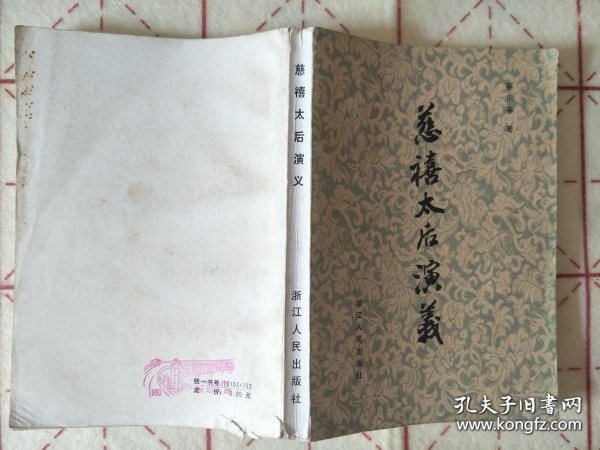 慈禧太后演义
浙江人民出版社
统一书号:10103·152
定 价: 0.95 元
蔡东藩 著
慈禧太后演義
浙江人民出版社
孔夫子旧书网
www.kongfz.com